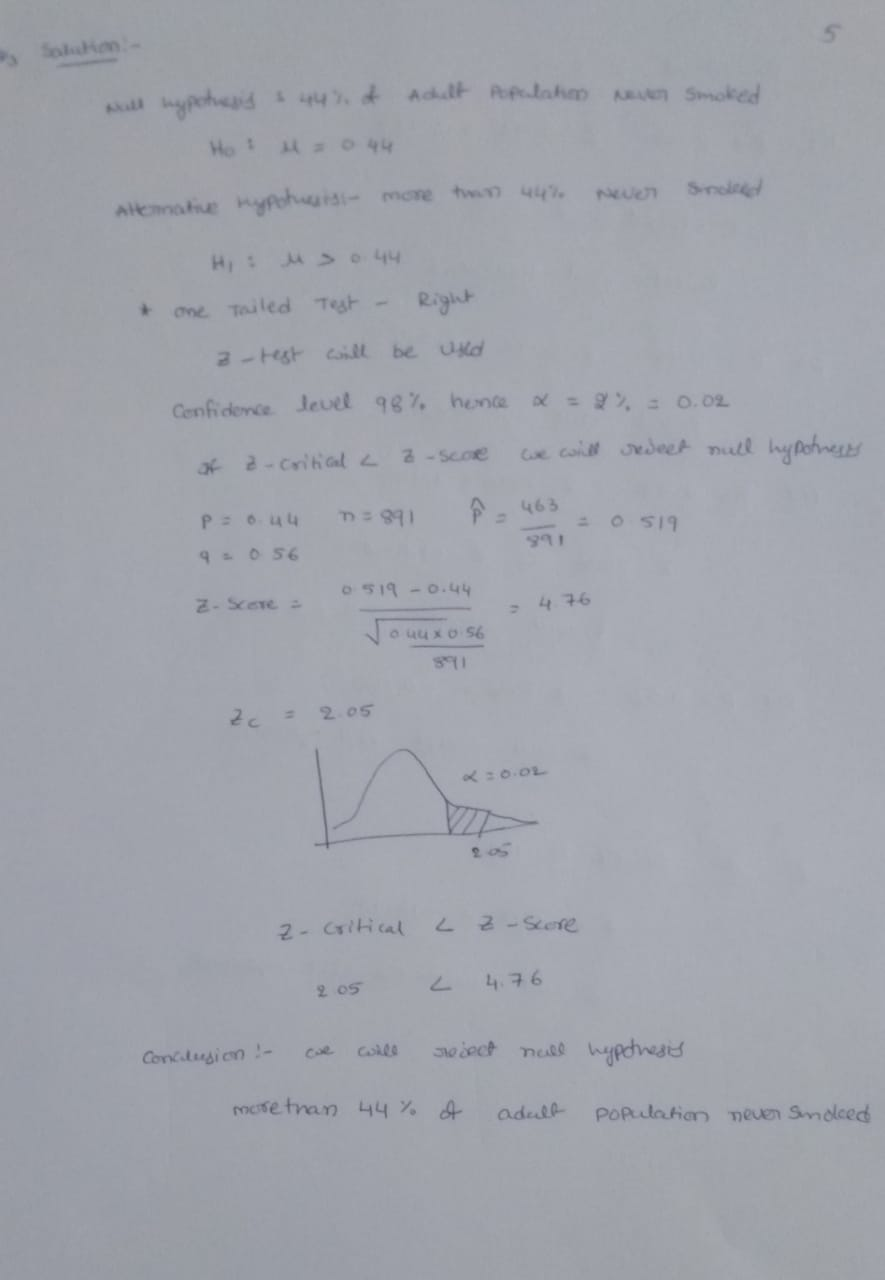 5
Solution:-
Null hypothesis : 44% of Adult Population Never Smoked
H0 : μ = 0.44
Alternative Hypothesis:- more than 44% Never Smoked
H1 : μ > 0.44
* one Tailed Test - Right
Z-test will be Used
Confidence level 98% hence α = 2% = 0.02
If Z-Critical < Z-score we will reject null hypothesis
P = 0.44 n = 891 p̂ = 463/891 = 0.519
q = 0.56
Z-Score = (0.519 - 0.44) / √(0.44 x 0.56 / 891) = 4.76
Zc = 2.05
α = 0.02
2.05
Z-Critical < Z-Score
2.05 < 4.76
Conclusion :- we will reject null hypothesis
more than 44% of adult population never smoked